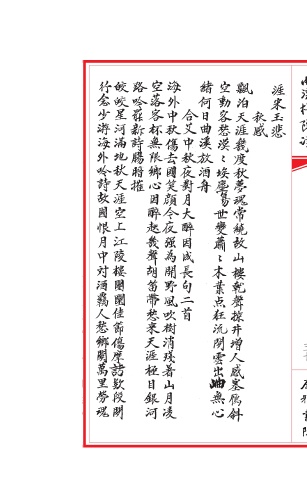 涯朱玉悲
秋感
飄泊天涯幾度秋夢魂常繞故山樓乾聲掠井增人感塞雁斜
空動客愁漠漠埃塵易世變蕭蕭木葉點狂流閒雲出岫無心
緒何日曲溪放酒舟
合艾中秋夜對月大醉因成長句二首
海外中秋傷去國笑顏今夜强為開野風吹樹消殘暑山月凌
空落客杯無限鄉心因醉起幾聲胡笛帶愁來天涯極目銀河
路吟罷新詩腸將摧
皎皎星河滿地秋天涯空上江陵樓團圞佳節傷摩詰歎段關
行念少游海外吟詩故國恨月中對酒羈人愁鄉關萬里勞魂